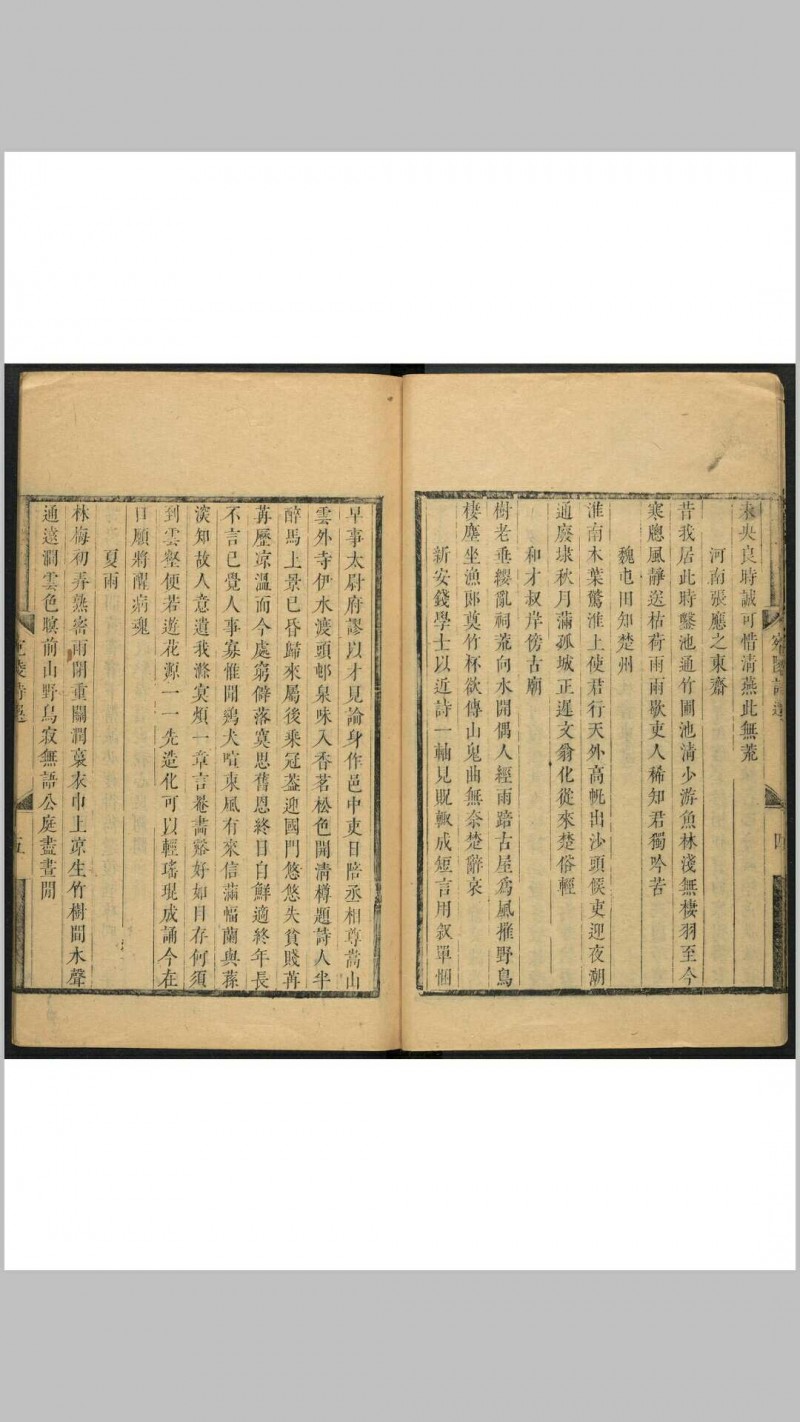 未央良時誠可惜清燕此無荒
河南張應之東齋
昔我居此時鑿池通竹圃池清少游魚林淺無棲羽至今
寒牕風靜送枯荷雨雨歇吏人稀知君獨吟苦
魏屯田知楚州
淮南木葉驚淮上使君行天外高帆出沙頭候吏迎夜潮
通廢埭秋月滿孤城正遲文翁化從來楚俗輕
和才叔岸傍古廟
樹老垂纓亂祠荒向水開偶人經雨踣古屋為風摧野鳥
棲塵坐漁郎奠竹杯欲傳山鬼曲無奈楚辭哀
新安錢學士以近詩一軸見貺輒成短言用敘單悃
宛陵詩選
四
早事太尉府謬以才見論身作邑中吏日陪丞相尊嵩山
雲外寺伊水渡頭邨泉味入香茗松色開清樽題詩人半
醉馬上景已昏歸來屬後乘冠蓋迎國門悠悠失貧賤苒
苒歷凉溫而今處窮僻落寞思舊恩終日自鮮適終年長
不言已覺人事寡惟聞鷄犬喧東風有來信滿幅蘭與蓀
深知故人意遺我滌寞煩一章言巷畵谿好如目存何須
到雲壑便若遊花源一一先造化可以輕瑤琨成誦今在
口願將醒病魂
夏雨
林梅初弄熟密雨閉重關潤裛衣巾上凉生竹樹間水聲
通遠澗雲色暝前山野鳥寂無語公庭盡晝閒
宛陵詩選
五